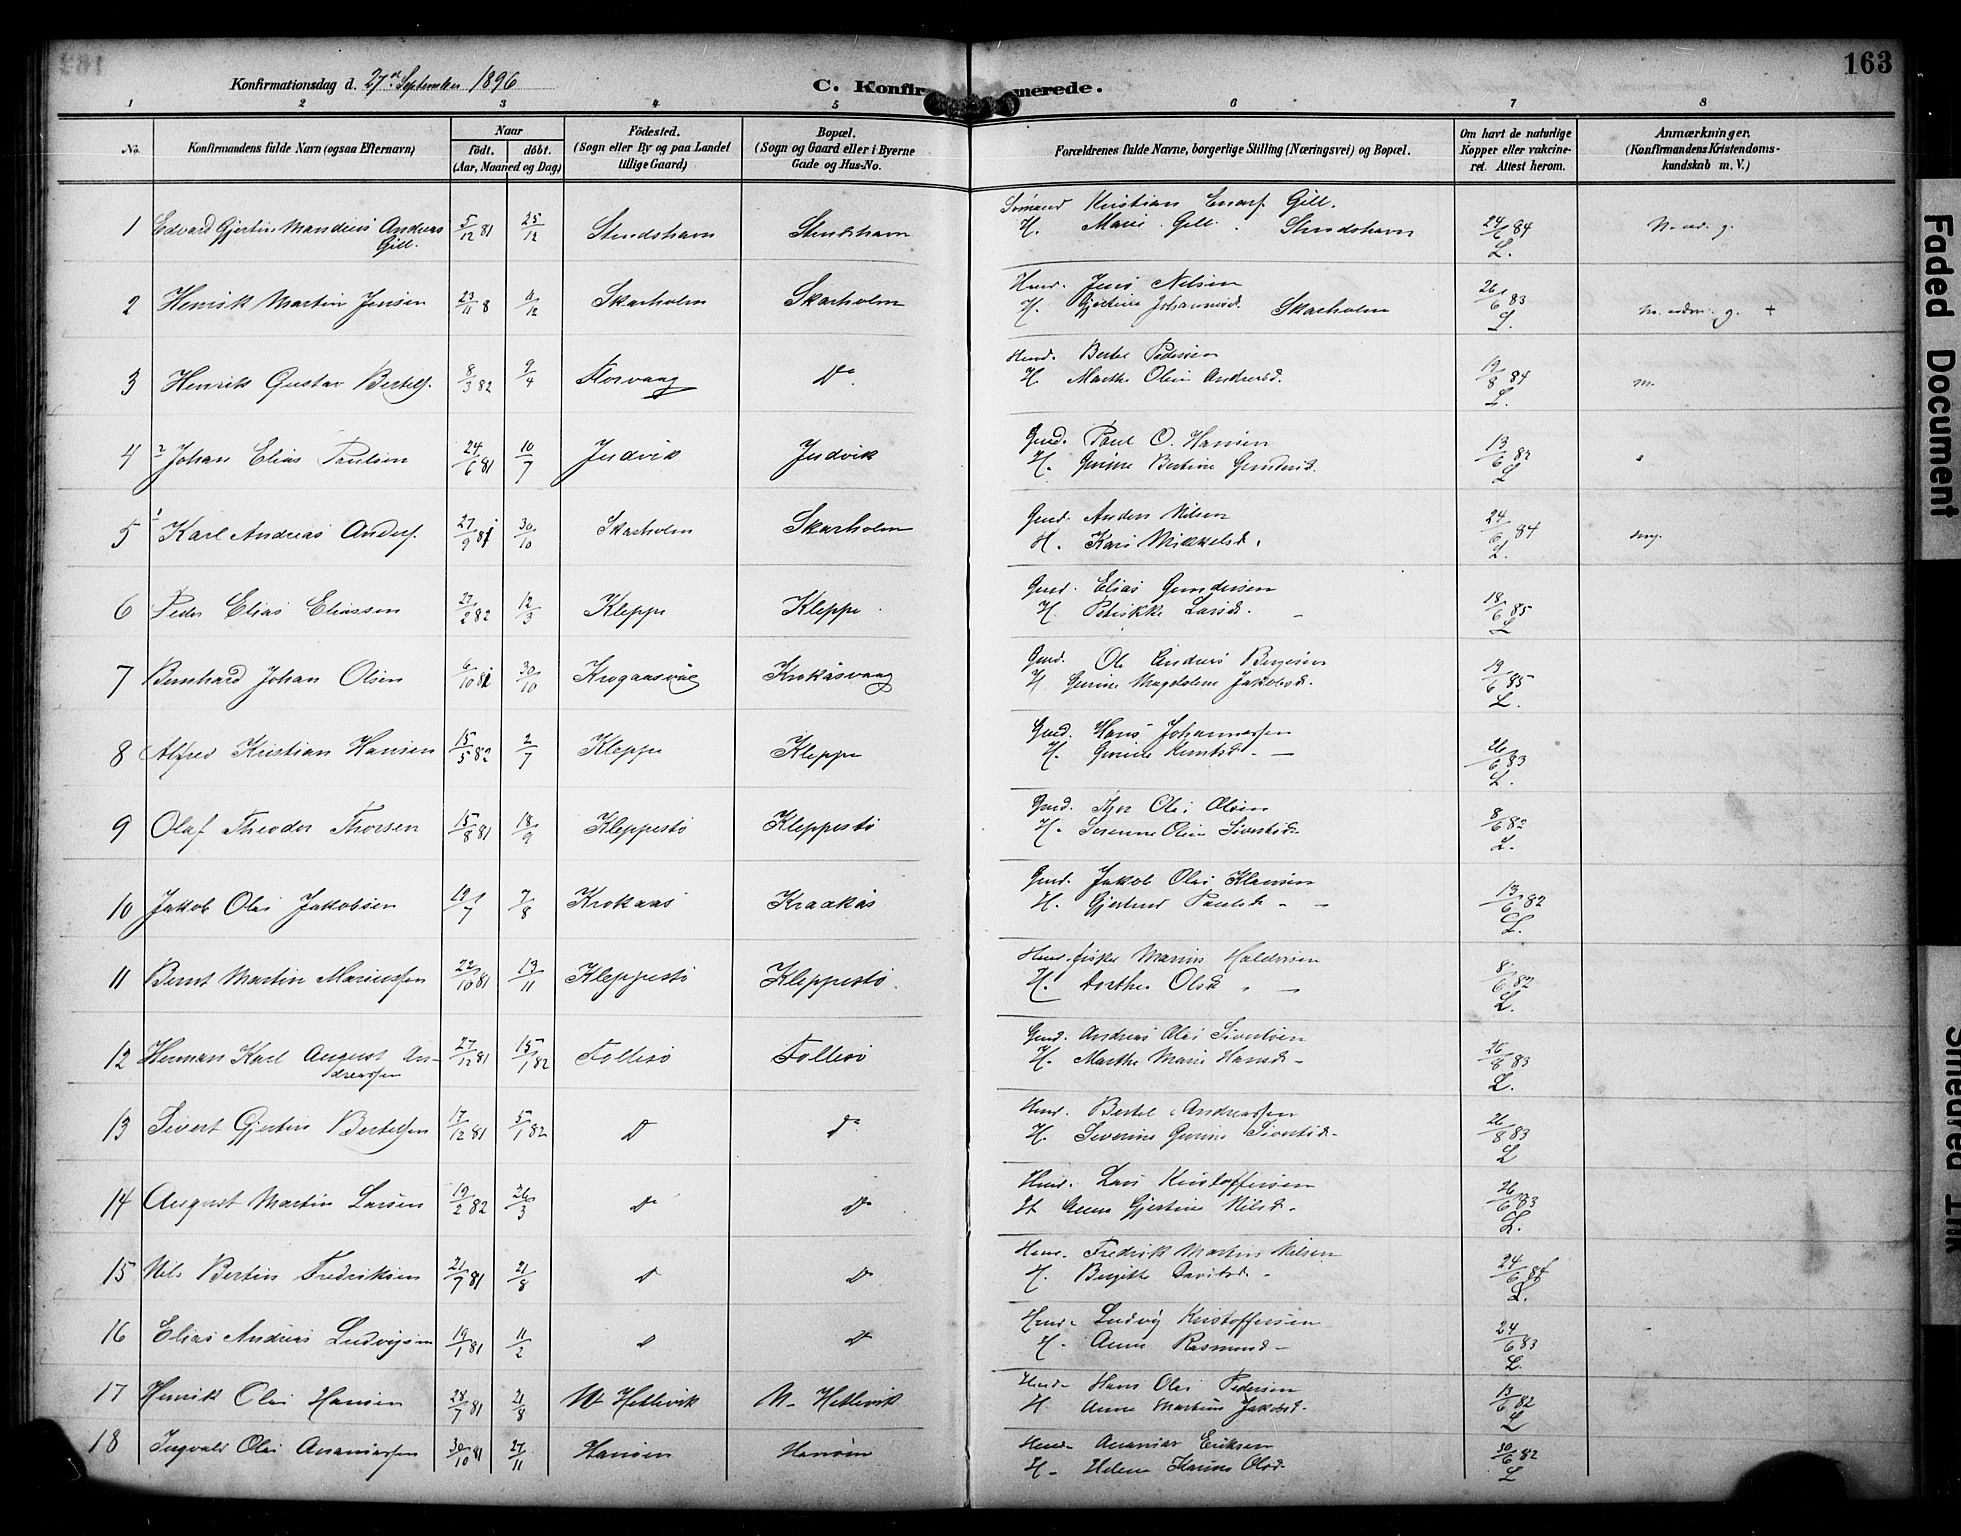 163
Konfirmationsdag d. 27de September 1896
C. Konfir merede.
1 2 3 4 5 6 7 8
No. Konfirmandens fulde Navn (ogsaa Efternavn) Naar födt. döbt. (Aar, Maaned og Dag) Födested. (Sogn eller By og paa Landet tillige Gaard) Bopæl. (Sogn og Gaard eller i Byerne Gade og Hus-No. Forældrenes fulde Navne, borgerlige Stilling (Næringsvei) og Bopæl. Om havt de naturlige Kopper eller vakcineret. Attest herom. Anmærkninger. (Konfirmandens Kristendomskundskab m. V.)
1 Edvard Gjertin Mandius Andreas Gill. 5/12 81 25/12 Stendshavn Stendshavn Kristian Gill. H. Marie Gill Stendshavn 24/6 84 L.
2 Henrik Martin Jensen 23/11 8 4/12 Skarholm Skarholm Huud. Jens Nilsen H. Gjertine Johannesd. Skarholm 26/6 83 L. +
3 Henrik Gustav Bertels. 8/3 82 9/4 Florvaag Do Huud. Bertel Pedersen H. Marthe Oline Andersd. 19/8 84 L. m.
4 2 Johan Elias Paulsen 24/6 81 10/7 Judvik Judvik Gmd. Paul O. Hansen H. Gurine Bertine 13/6 82 L
5 1 Karl Andreas Anders. 27/9 81 30/10 Skarholm Skarholm Gmd. Anders Nilsen H. Kari Mikkelsd. 24/6 84 L.
6 Peder Elias Eliassen 27/2 82 12/3 Kleppe Kleppe Gmd. Elias Gundersen H. Petrikke Larsd. 18/6 85 L
7 Bernhard Johan Olsen 6/10 81 30/10 Krogaasvåg Krokåsvaag Gmd. Ole Andreas H. Gurine Magdalene Jakobsd. 19/6 85 L.
8 Alfred Kristian Hansen 15/5 82 2/7 Kleppe Kleppe Gmd. Hans Johannessen H. Gurine Knutsd. 26/6 83 L.
9 Olaf Theodor Thorsen 15/8 81 18/9 Kleppestö Kleppestö Gmd. Thor Olai Olsen H. Olina Sivertsd. 8/6 82 L.
10 Jakob Olai Jakobsen 19/7 7/8 Krokaas Kraakås Gmd. Jakob Olai H. Gjertrud Paulsd. 13/6 82 L.
11 Bernt Martin Mariussen 22/10 81 13/11 Kleppestö Kleppestö Marius Haldorsen H. Dorthea Olsd. 8/6 82 L
12 Herman Karl August Andreassen 27/12 81 15/1 82 Follesö Follesö Gmd. Andreas Olai Sivertsen H. Marthe Marie Hansd. 26/8 83 L.
13 Sivert Gjertin Bertelsen 17/12 81 5/1 82 Do Do Hmd. Bertel Andreassen H. Severine Gurine Sivertsd. 26/8 83 L
14 August Martin Larsen 19/2 82 26/3 Do Do Hmd. Lars Kristoffersen H. Anna Gjertine Nilsd. 26/6 83 L.
15 Nils Bertin Fredriksen 21/7 81 21/8 Do Do Hmd. Fredrik Martin Nilsen H. Birgitte Davidsd. 24/6 84 L.
16 Elias Andreas Ludvigsen 19/1 81 11/2 Do Do Hmd. Ludvig Kristoffersen H. Anne Rasmusd. 24/6 83 L.
17 Henrik Olai Hansen 28/7 81 21/8 N. Hetlevik N. Hetlevik Hmd. Hans Olai Pedersen H. Anne Martine Jakobsd. 13/6 82 L
18 Ingvald Olai Ananiassen 30/10 81 27/11 Hanöen Hanöen Hmd. Ananias Eriksen H. Helene Karine Olsd. 30/6 82 L
Faded Document
Smeared Ink